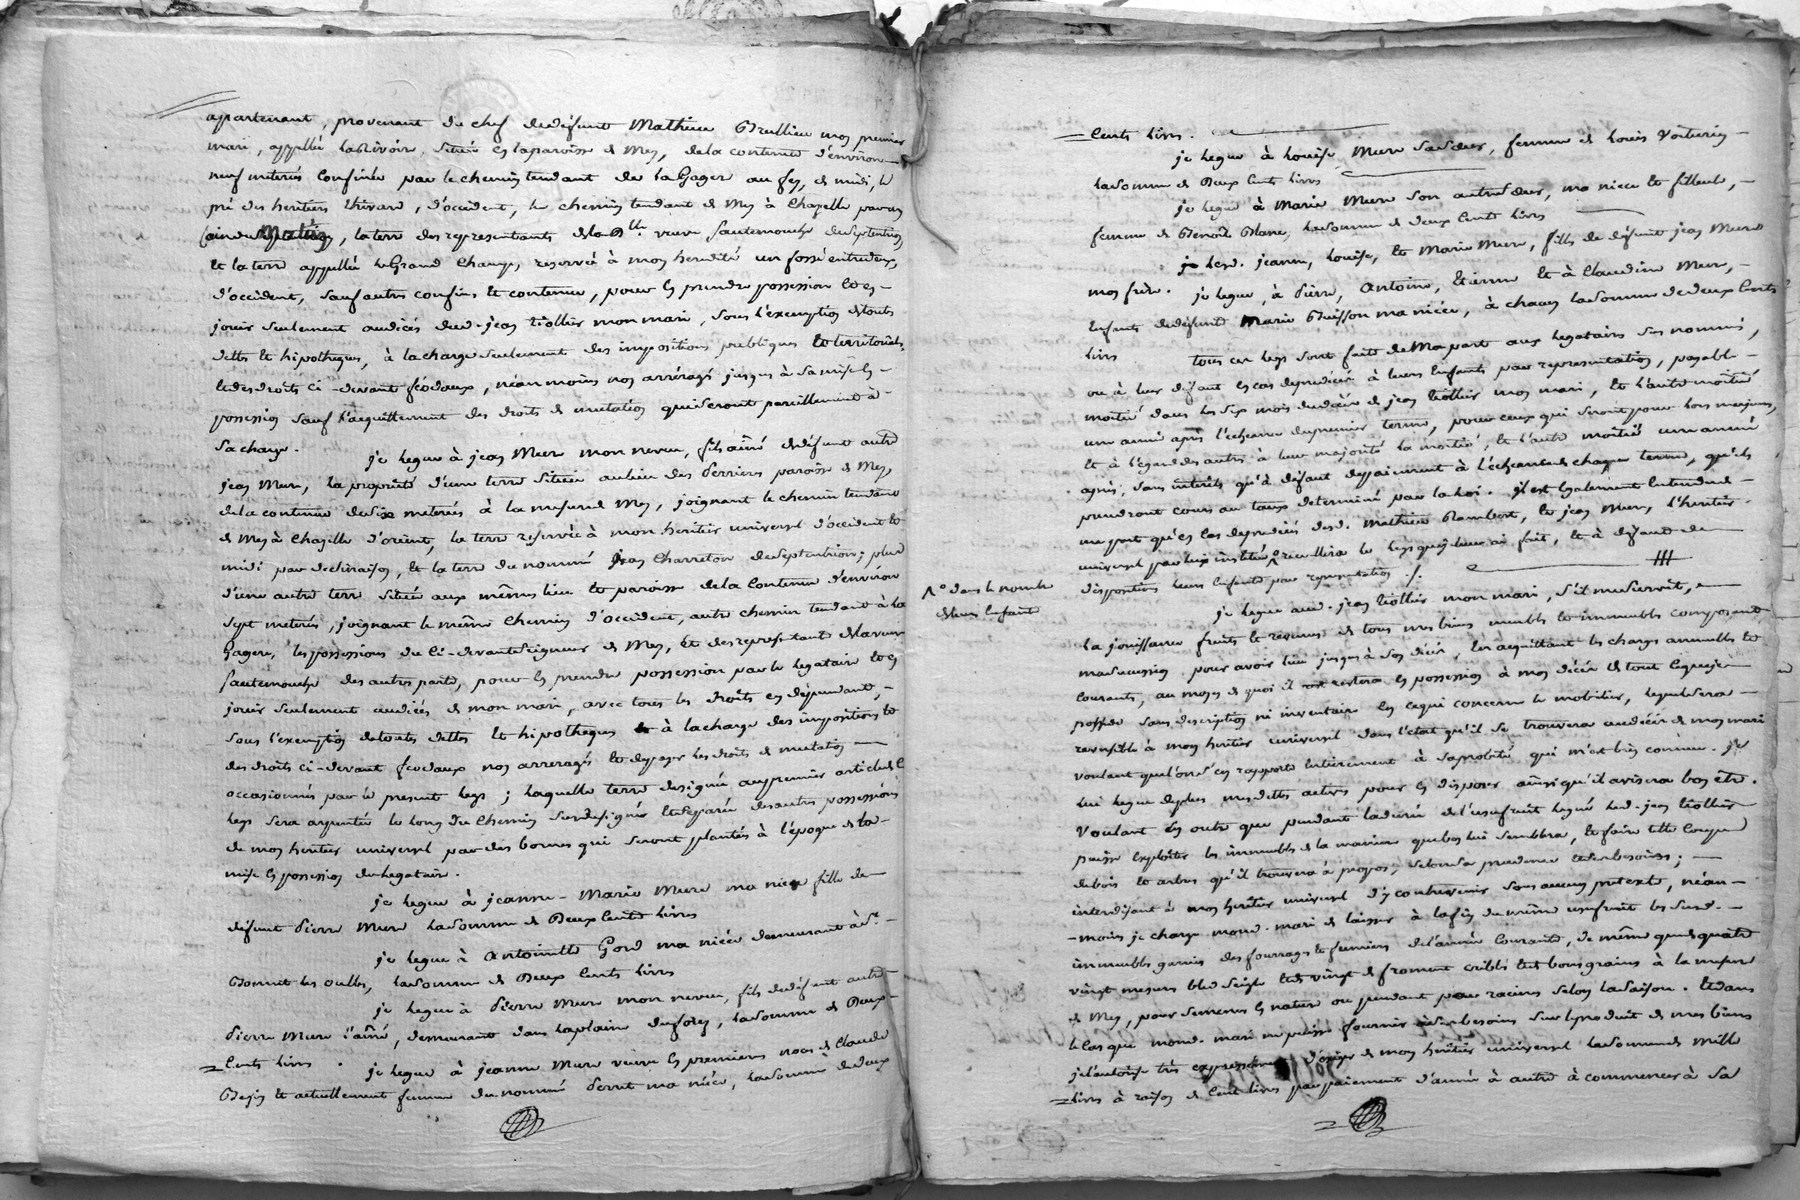 apartenant, provenant du chef de défunt Mathieu Brullieu mon premier
mari, appellée la Rivoire, située en la paroisse de Mey, de la contenue d'environ
neuf meterés confinée par le chemin tendant de la Gager au fey, de midi, le
pré des heritiers thivard, d'occident, le chemin tendant de Mey à Chazelle par
matin, la terre des representants de la Dlle veuve Sautemouche de septentrion
et la terre appellée le Grand Champ, reservée à mon heredité un fossé entredeux,
d'occident, sauf autres confins et contenue, pour en prendre possession et en
jouir seulement au décès dud. jean Viollier mon mari, sous l'exemption de touts
detts et hipotheques, à la charge seulement des impositions publiques et territoriales,
et des droits ci-devant féodaux, néanmoins nos arréragés jusques à sa mise en
possession sauf l'acquittement des droits de mutation qui seront pareillement à
sa charge. je legue à jean Mure mon neveu, fils aîné de défunt autre
jean Mure, la propriété d'une terre située au lieu des Perriers paroisse de Mey,
de la contenue de six meterés à la mesure de Mey, joignant le chemin tendant
de Mey à Chazelle d'orient, la terre reservée à mon heritier universel d'occident et
midi par declinaison, et la terre du nommé jean Charreton de septentrion; plus
d'une autre terre située aux mêmes lieu et paroisse de la contenue d'environ
sept meterés, joignant le même chemin d'occident, autre chemin tendant à la
Gagere, les possessions du ci-devant seigneur de Mey, et des representants de la veuve
Sautemouche des autres parts, pour en prendre possession par le legataire et en
jouir seulement au décès de mon mari, avec tous les droits en dépendant,
sous l'exemption de touts detts et hipotheques et à la charge des impositions et
des droits ci-devant feodaux nos arreragés et de payer les droits de mutation
occasionnés par le present legs; laquelle terre designée au premier article de ce
legs sera arpentée le long du chemin susdesigné et separée des autres possessions
de mon heritier universel par des bornes qui seront plantés à l'époque de la
mise en possession du legataire.
je legue à jeanne-Marie Mure ma niece fille de
défunt Pierre Mure la somme de Deux Cents livres
je legue à Antoinette Gord ma niéce demeurant à St.
Bonnet les oulles, la somme de Deux Cents livres
je legue à Pierre Mure mon neveu, fils de défunt autre
Pierre Mure l'aîné, demeurant dans la plaine du forez, la somme de Deux
Cents livres. je legue à jeanne Mure veuve en premieres noces de Claude
Bejin et actuellement femme du nommé Perret ma niéce, la somme de deux
Cents livres.
je legue à Louise Mure sa sœur, femme de Louis Voiturier
la somme de Deux Cents livres
je legue à Marie Mure son autre sœur, ma niece et filleule,
femme de Benoit Blanc, la somme de deux Cents livres
je lesd. jeanne, Louise, et Marie Mure, filles de défunt jean Mure
mon frère. je legue, à Pierre, Antoine, Etienne et à Claudine Mure,
enfants de défunte Marie Buisson ma niéce, à chacun la somme de deux Cents
livres tous ces legs sont faits de Ma part aux legatairs sus nommés,
ou à leur défaut en cas de predécès à leurs enfants par representation, payable
moitié dans les six mois du décès de jean Viollier mon mari, et l'autre moitié
un année après l'echeance du premier terme, pour ceux qui seront pour lors majeurs,
et à l'égard des autres à leur majorité la moitié, et l'autre moitié un année
après, sans intérêts qu'à défaut de paiement à l'échéance de chaque terme, qu'ils
prendront cours au taux determiné par la Loi. il est egalement entendu
ne port qu'en cas de predécès desd. Mathieu Rambert, et jean Mure, l'heritier
universel par lui institué recueillera les legs que je leur ai fait, et à défaut de
disposition leurs enfants par representation /.
No dans le nombre
de leurs enfants
je legue aud. jean Viollier mon mari, s'il me survit,
la jouissance fruits et revenus de tous mes biens meubles et immeubles composant
ma succession pour avoir lieu jusques à son décès, en acquittant les charges annuelles et
courants, au moyen de quoi il restera en possession à mon décès de tout ce que je
possède sans description ni inventaire en ce qui concerne le mobilier, lequel sera
reversible à mon heritier universel dans l'état qu'il se trouvera au décès de mon mari
voulant que l'on s'en rapporte entierement à sa probité qui m'est bien connue. je
lui legue de plus mes detts actives pour en disposer ainsi qu'il avisera bon être.
Voulant en outre que pendant la durée de l'usufruit legué led. jean Viollier
puisse exploiter les immeubles de la maniere que bon lui semblera, et faire telle coupe
de bois et arbres qu'il trouvera à propos, selon sa prudence et ses besoins;
interdisant à mon heritier universel d'y contrevenir sous aucun pretexte, néan-
-moins je charge mond. mari de laisser à la fin du même usufruit les susd.
immeubles garnis des fourrages et fumiers de l'année courante, de même que de quatre
vingt mesures bled seigle et de vingt de froment criblés et bons grains à la mesure
de Mey, pour semences en nature ou pendant par racines selon la saison. Et dans
le cas que mond. mari ne puisse fournir à ses besoins sur le produit de mes biens
je l'autorise très expressément d'exiger de mon heritier universel la somme de mille
livres à raison de Cent livres par paiement d'année à autre à commencer à sa